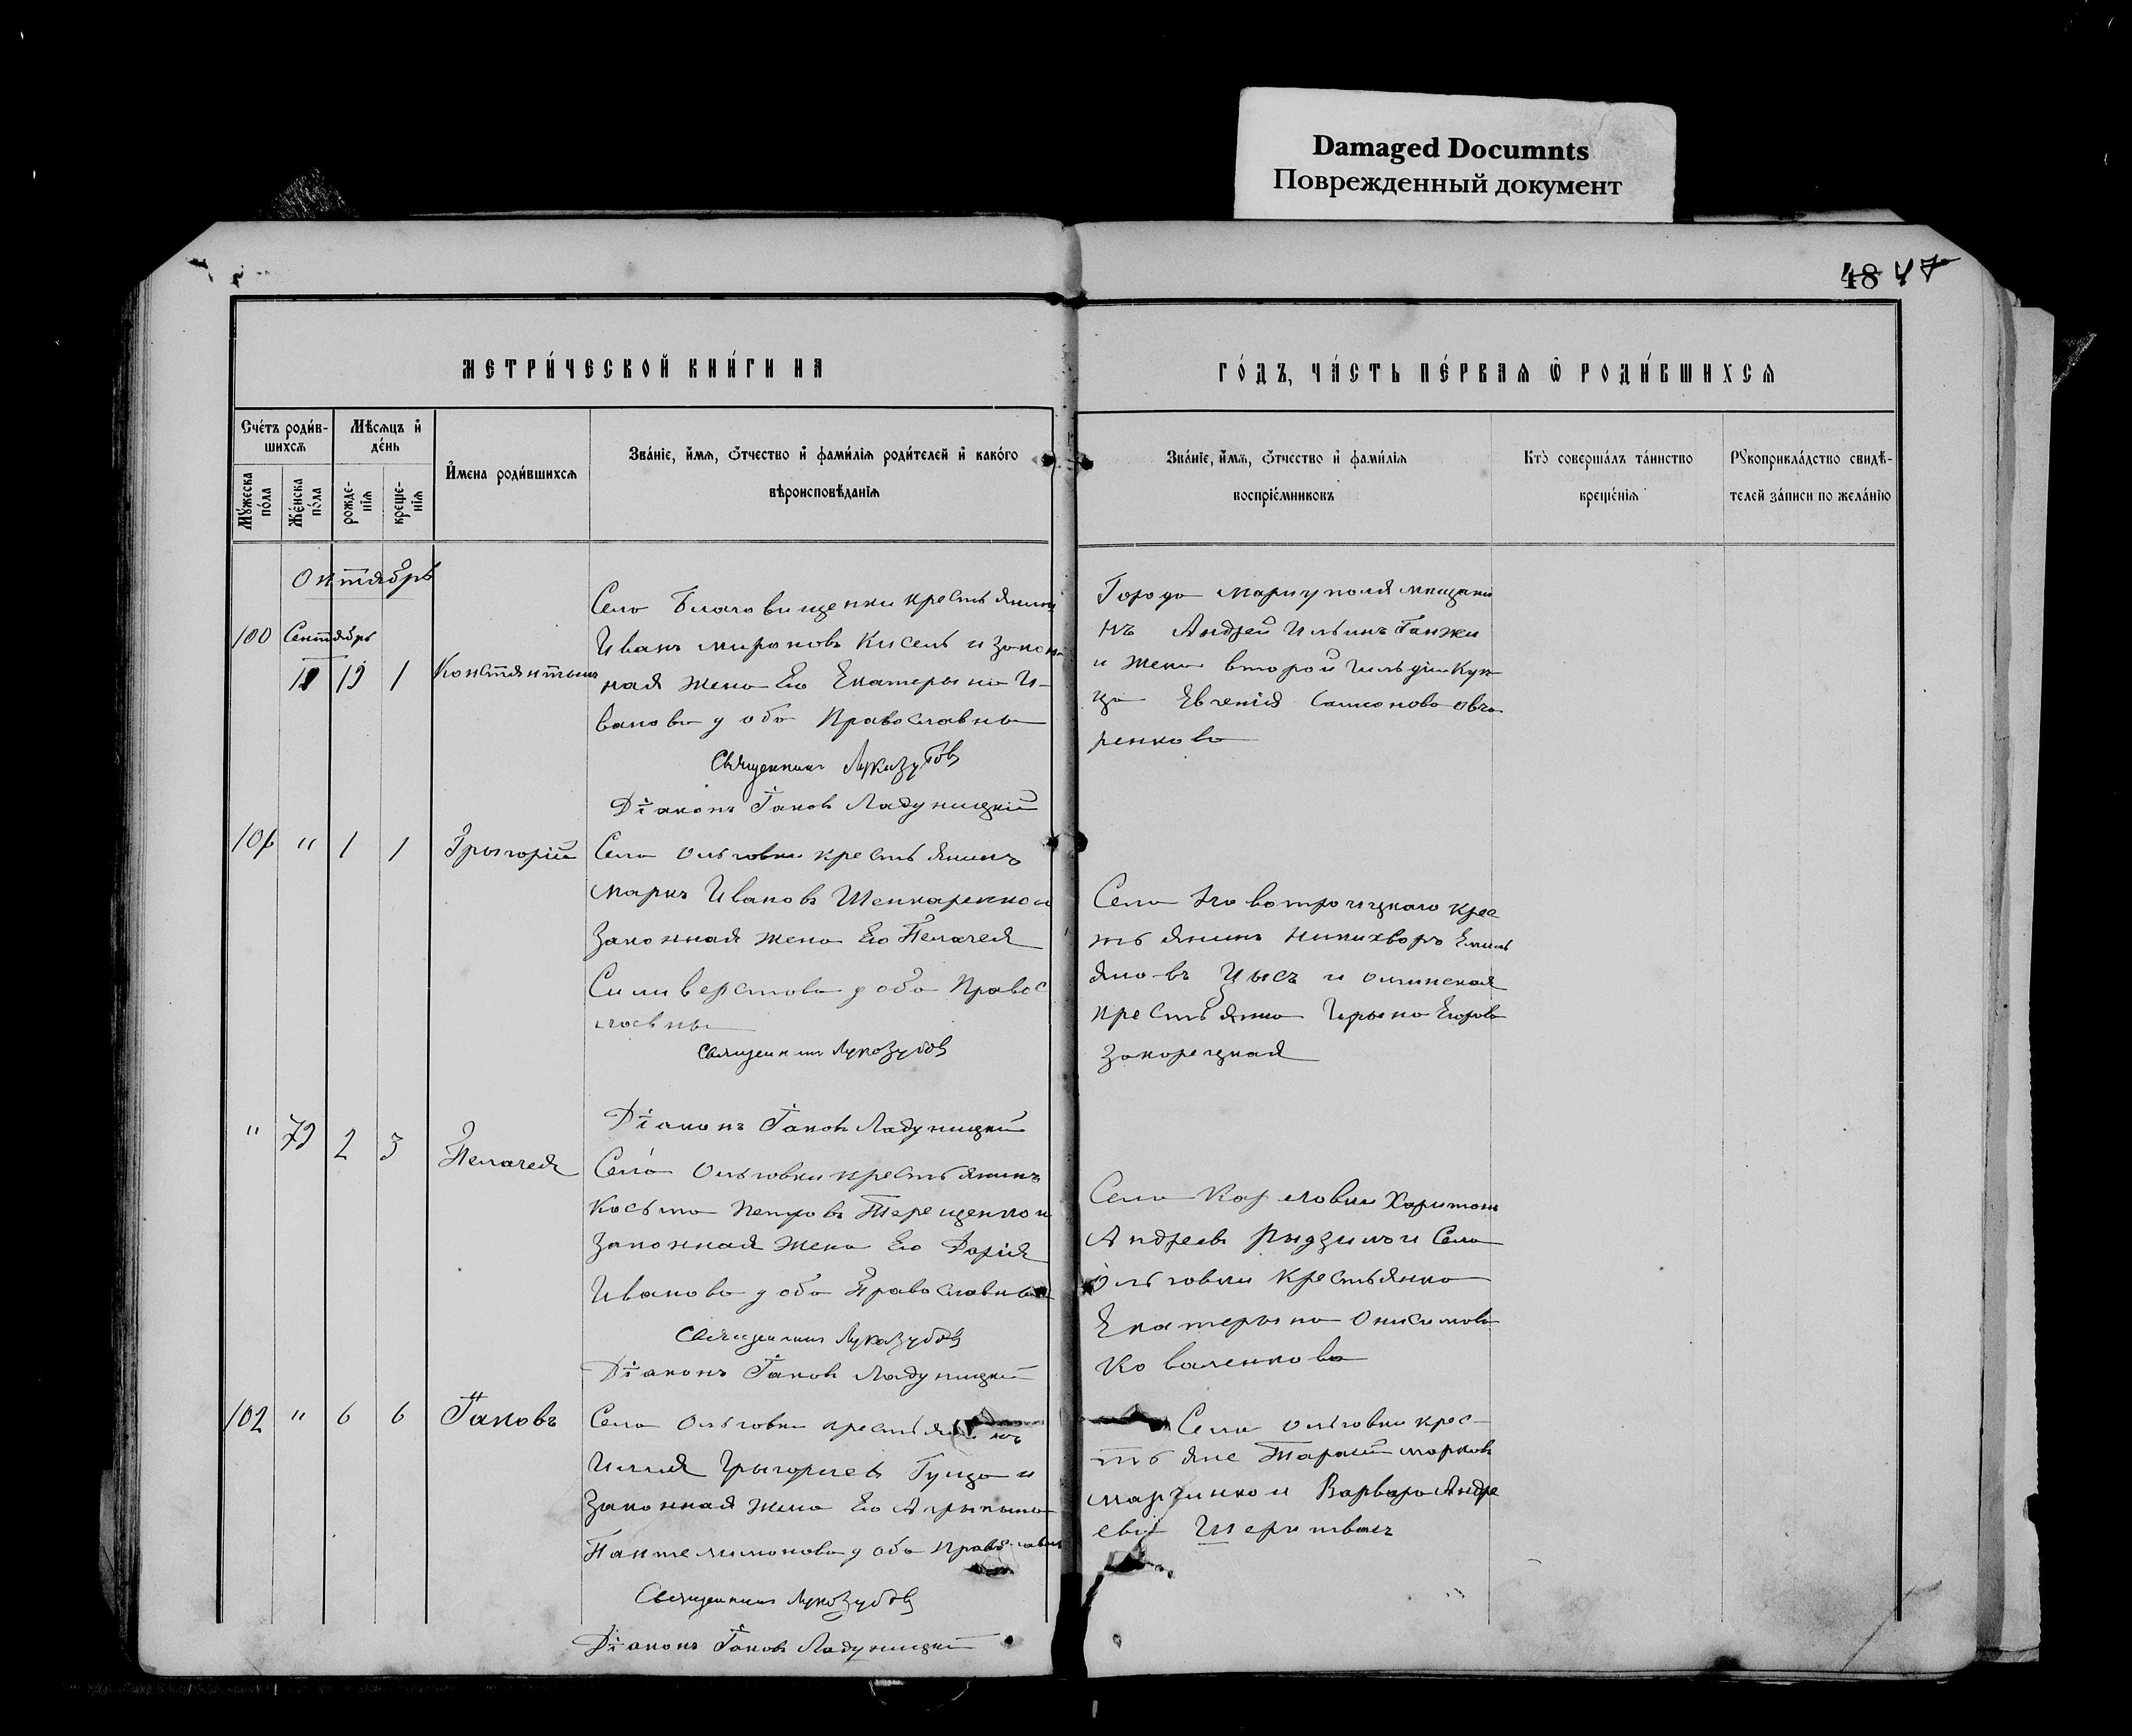 Damaged Documnts
Поврежденный документ
48 47
МЕТРИ́ЧЕСКОЙ КНИ́ГИ НА
ГО́ДЪ, ЧА́СТЬ ПЕ́РВАЯ Ѽ РОДИ́ВШИХСЯ
Сче́тъ роди́в-
шихсѧ
Мѣсяцъ и҆
де́нь
Мꙋ́жеска
по́ла
Же́нска
по́ла
рожде-
нїѧ
креще-
нїѧ
И҆мена роди́вшихсѧ
Зва́нїе, и҆́мѧ, ѻ҆́тчество и҆ фами́лїѧ роди́телей и҆ како́гѡ
вѣроисповѣ́данїѧ
Зва́нїе, и҆́мѧ, ѻ҆́тчество и҆ фами́лїѧ
воспрїе́мниковъ
Кто̀ соверша́лъ та́инство
креще́нїѧ
Рꙋкоприкла́дство свидѣ́-
телей за́писи по жела́нїю
Октябрь
100 Сентябрь
19 1 Константынъ
Села Благовищенки крестьянинъ
Иванъ Мироновъ Кисель и закон
ная жена Его Екатерына И-
ванова у оба Православны
Священникъ Лукозубовъ
Діаконъ Іаковъ Ладуницкій
Города Мариуполя мищани
нъ Андрей Ильинъ Ганжи
и жена второй гильдіи Куп
ца Евгенія Самонова Овча
ренкова
101 " 1 1 Грыгорій
Села Ольговки крестьянинъ
Маркъ Ивановъ Шенкаренко и
Законная жена Его Пелагея
Силиверстова у оба Правос
лавны
Священникъ Лукозубовъ
Діаконъ Іаковъ Ладуницкій
Села Новотроицкаго крес
тьянинъ Никихворъ Емиль
яновъ Цысъ и
крестьянка Ирына Егорова
Закорецкая
" 79 2 3 Пелагея
Села Ольговки крестьянинъ
Косьма Петровъ Терещенко и
Законная жена Его Дарія
Иванова у оба Православны
Священникъ Лукозубовъ
Діаконъ Іаковъ Ладуницкій
Села Карловки Харитонъ
Андреевъ и Села
Ольговки Крестьянка
Екатерына Онисимова
Коваленкова
102 " 6 6 Іаковъ
Села Ольговки крестьянинъ
Иллия Грыгориевъ Гуцда и
Законная жена Его Агрыпына
Пантелимонова у оба Православны
Священникъ Лукозубовъ
Діаконъ Іаковъ Ладуницкій
Села Ольговки крес-
тьяне Тарасій Марковъ
Марченко и Варвара Андре
ева